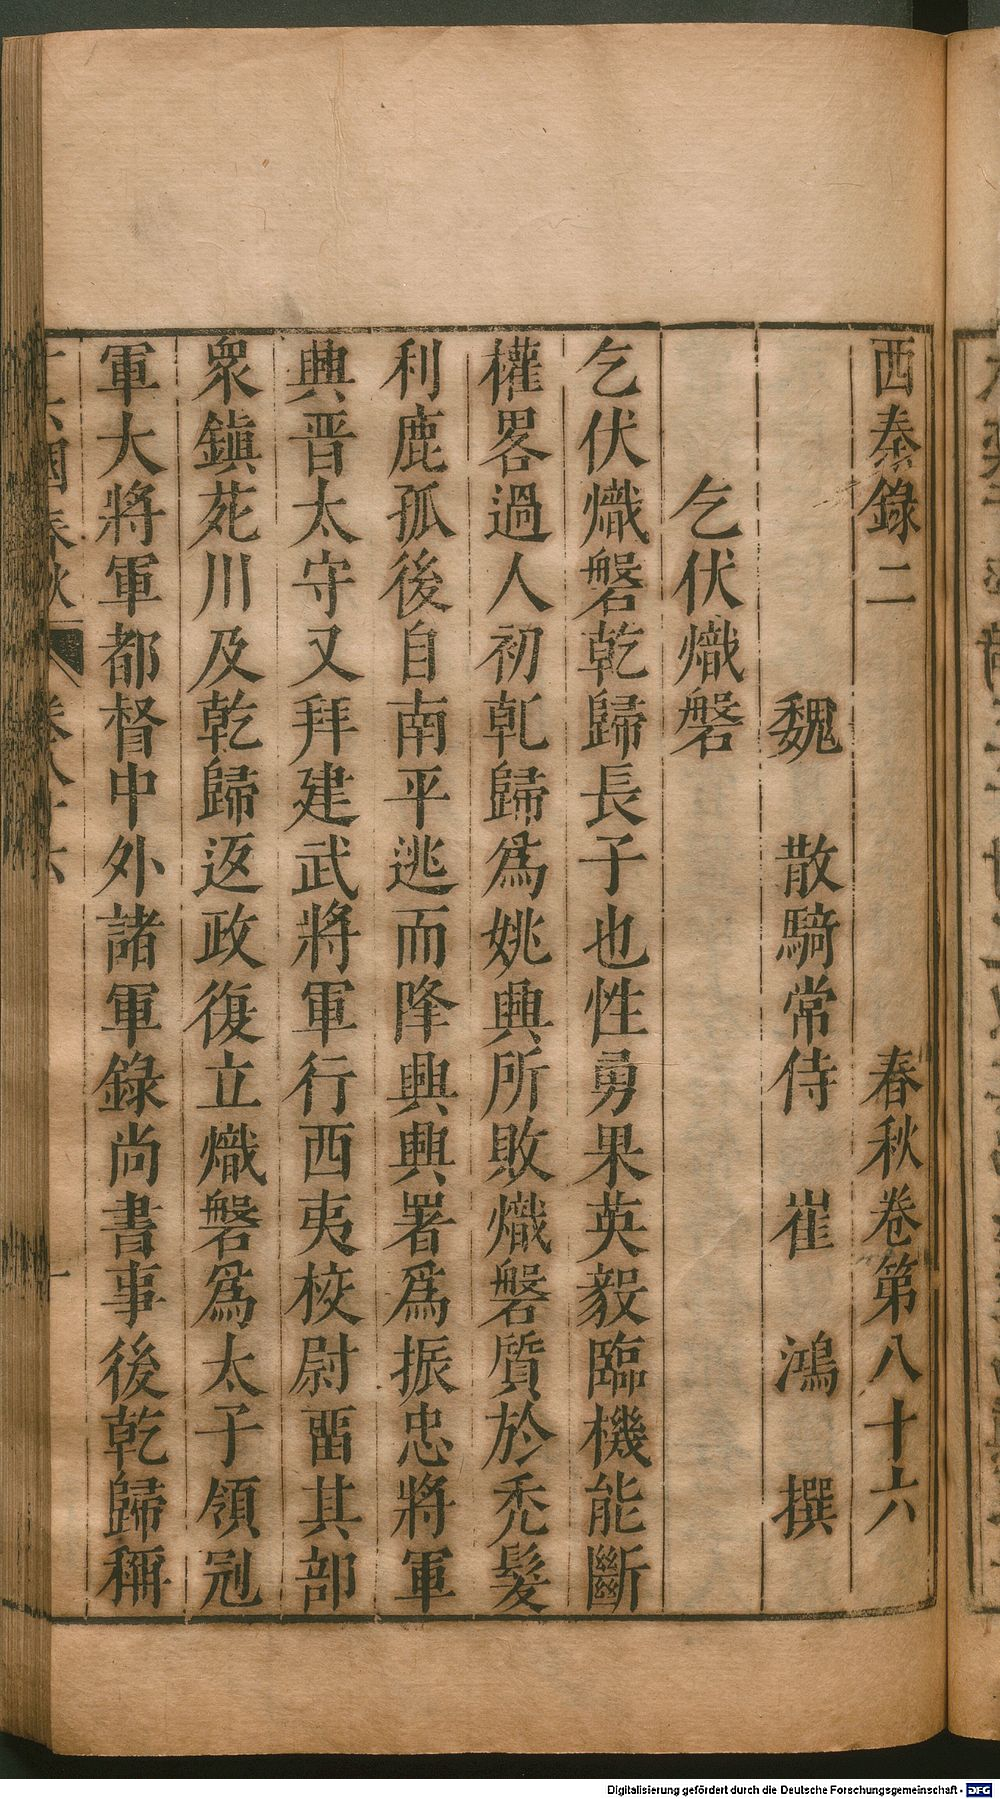 西秦錄二 春秋卷第八十六
魏 散騎常侍 崔 鴻 撰
乞伏熾磐
乞伏熾磐乾歸長子也性勇果英毅臨機能斷
權畧過人初乹歸爲姚興所敗熾磐質於禿髮
利鹿孤後自南平逃而降興興署爲振忠將軍
興晋太守又拜建武將軍行西夷校尉畱其部
衆鎭苑川及乾歸返政復立熾磐爲太子領冠
軍大將軍都督中外諸軍錄尚書事後乾歸稱
國春秋 卷八十六 一
Digitalisierung gefördert durch die Deutsche Forschungsgemeinschaft - DFG